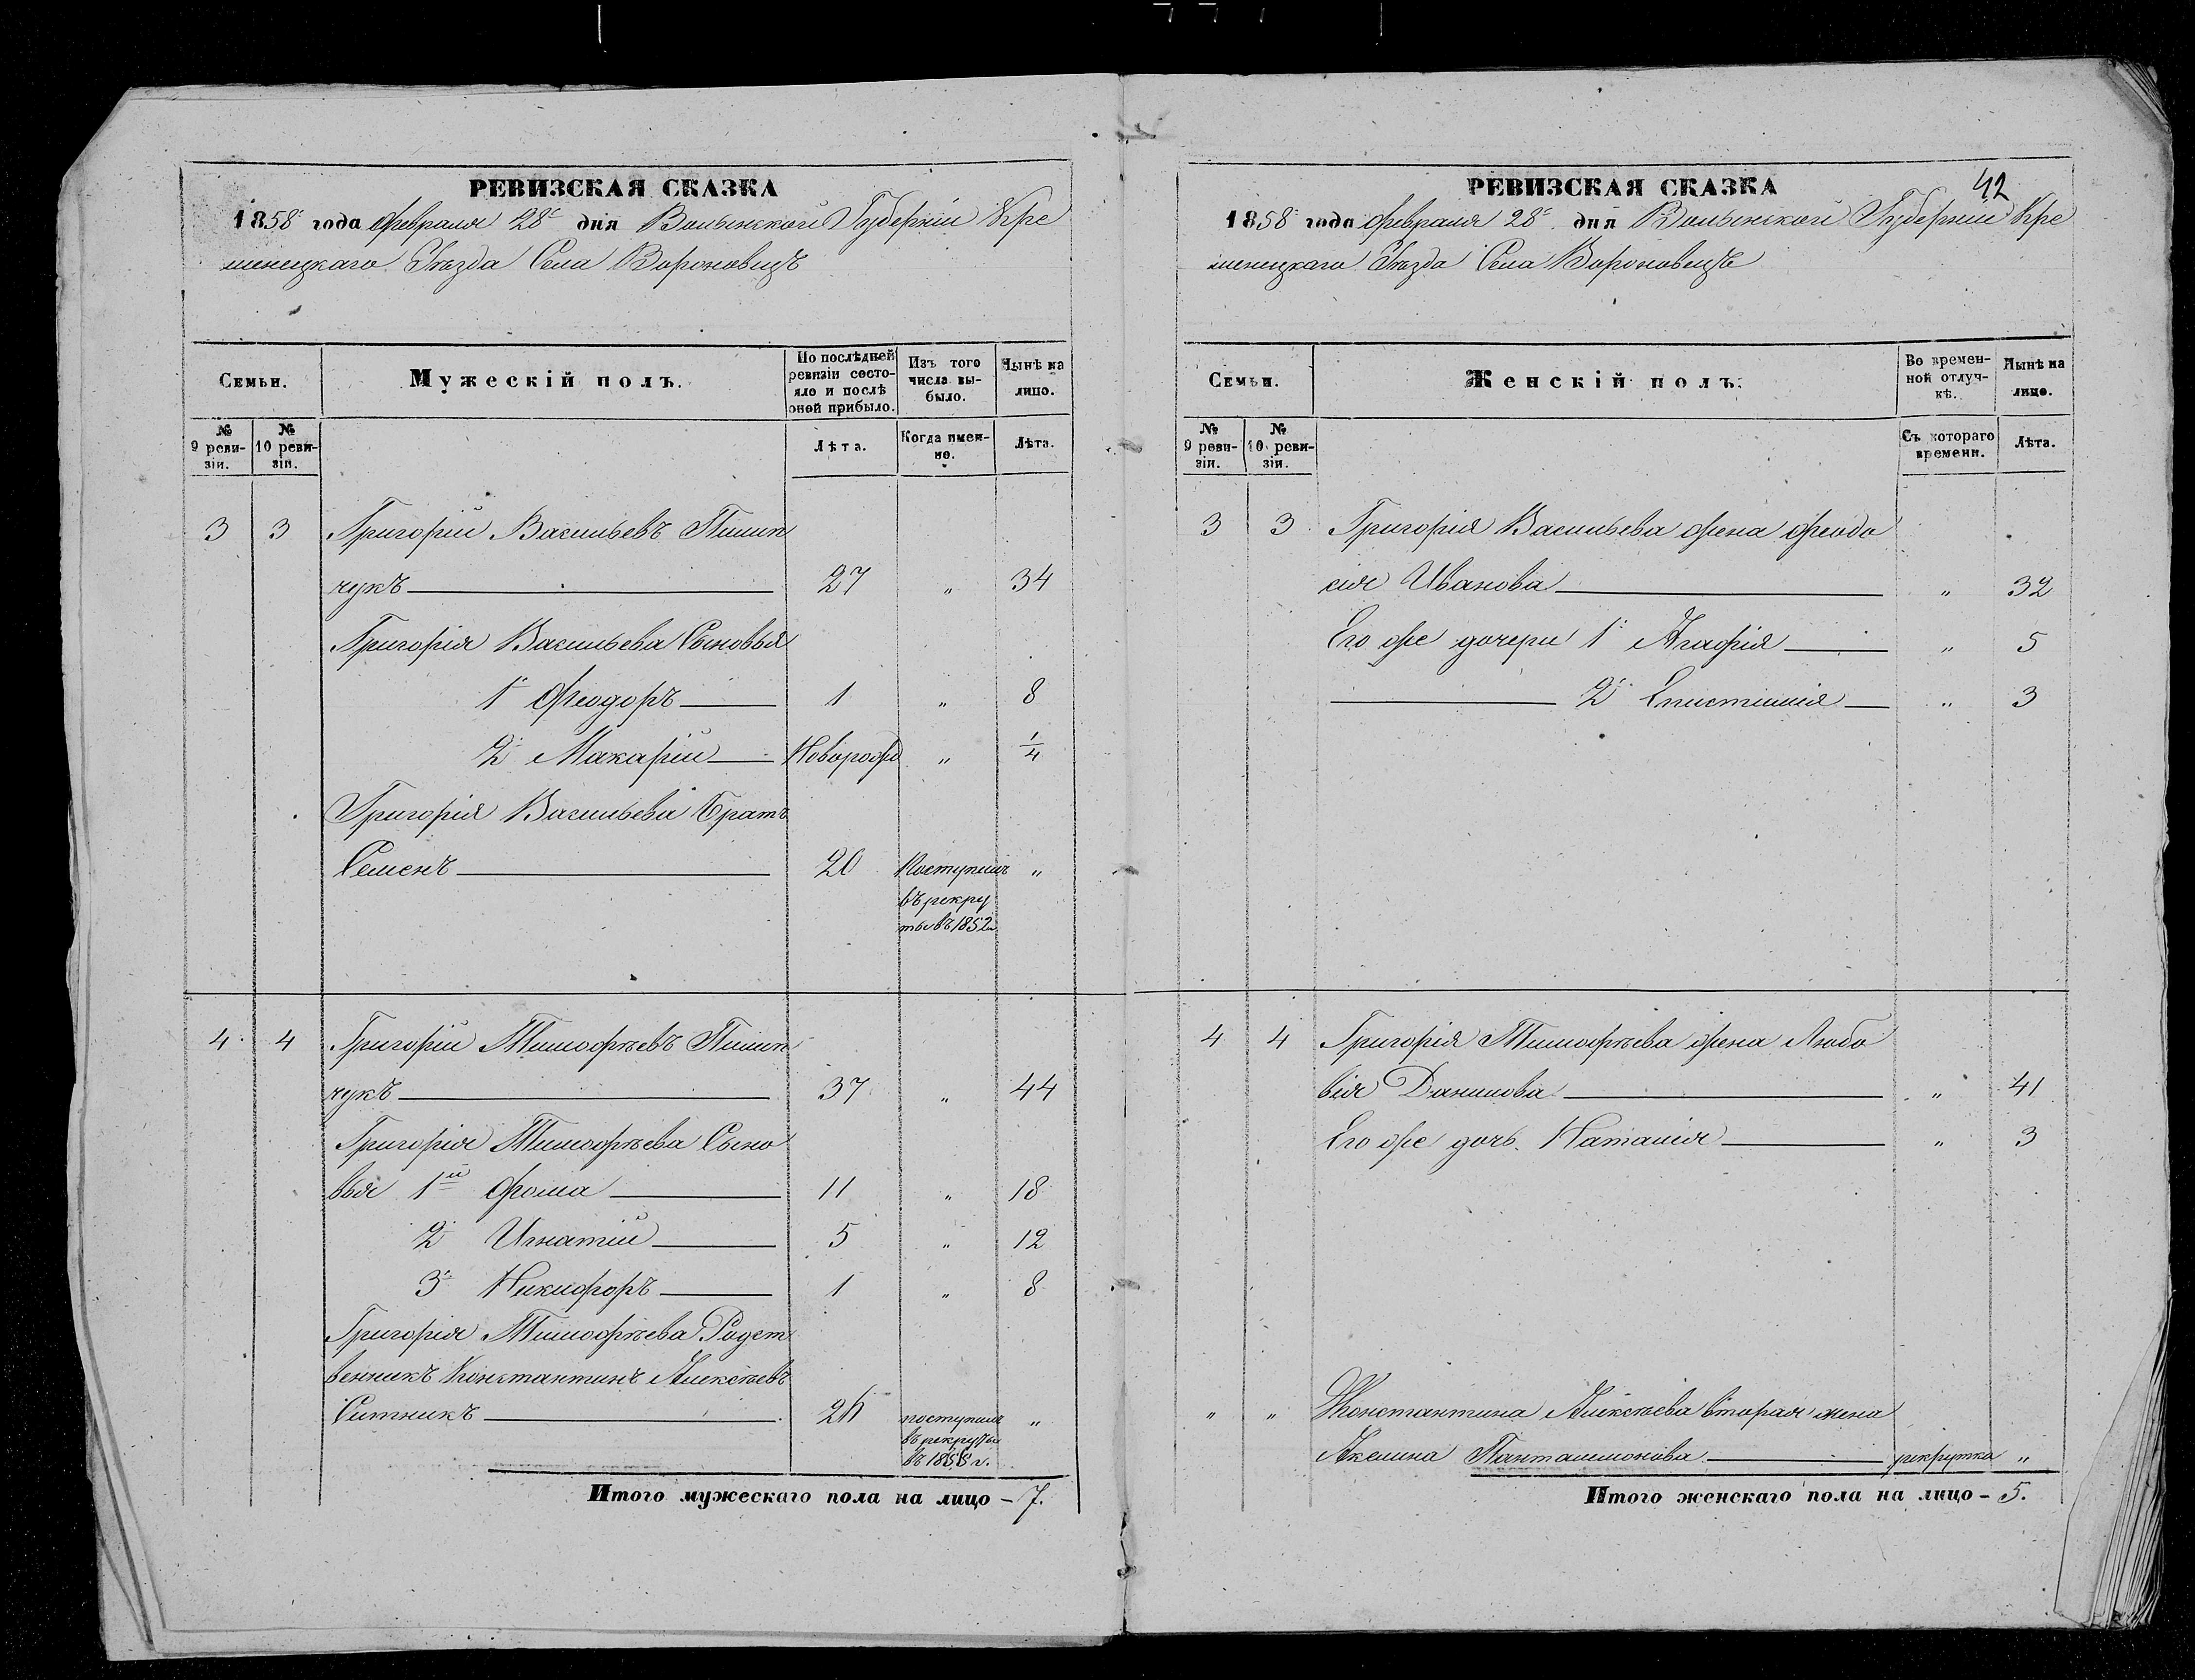 РЕВИЗСКАЯ СКАЗКА
1858 года Февраля 28 дня Волынской Губерніи Кре
менецкаго Уѣзда Села Вороновецъ
Семьи.
Мужескій полъ.
По послѣдней ревизіи состояло и послѣ оной прибыло.
Изъ того числа выбыло.
Нынѣ на лицо.
№ 9 ревизіи.
№ 10 ревизіи.
Лѣта.
Когда именно.
Лѣта.
3 3 Григорій Васильевъ Пилип
чукъ 27 " 34
Григорія Васильева Сыновья
1й Феодоръ 1 " 8
2й МакарійНоворожд " 1/4
Григорія Васильева Братъ
Семенъ 20 Поступилъ "
въ рекру
ты въ 1852г
4 4 Григорій Тимофѣевъ Пилип
чукъ 37 " 44
Григорія Тимофѣева Сыно
вья 1й Фома 11 " 18
2й Игнатій 5 " 12
3й Никифоръ 1 " 8
Григорія Тимофѣева Родст
венникъ Константинъ Алексѣевъ
Ситникъ поступилъ "
въ рекруты
въ г.
Итого мужескаго пола на лицо - 7.
42
РЕВИЗСКАЯ СКАЗКА
1858 года Февраля 28 дня Волынской Губерніи Кре
менецкаго Уѣзда Села Вороновецъ
Семьи.
Женскій полъ.
Во временной отлучкѣ.
Нынѣ на лицо.
№ 9 ревизіи.
№ 10 ревизіи.
Съ котораго времени.
Лѣта.
3 3 Григорія Васильева жена Феодо
сія Иванова " 32
Его же дочери 1я Агафія " 5
2я Епистимія " 3
4 4 Григорія Тимофѣева жена Любо
вія Данилова " 41
Его же дочь Наталія " 3
" " Константина Алексѣева вторая жена
Акелина Панталемонова рекрутка "
Итого женскаго пола на лицо - 5.